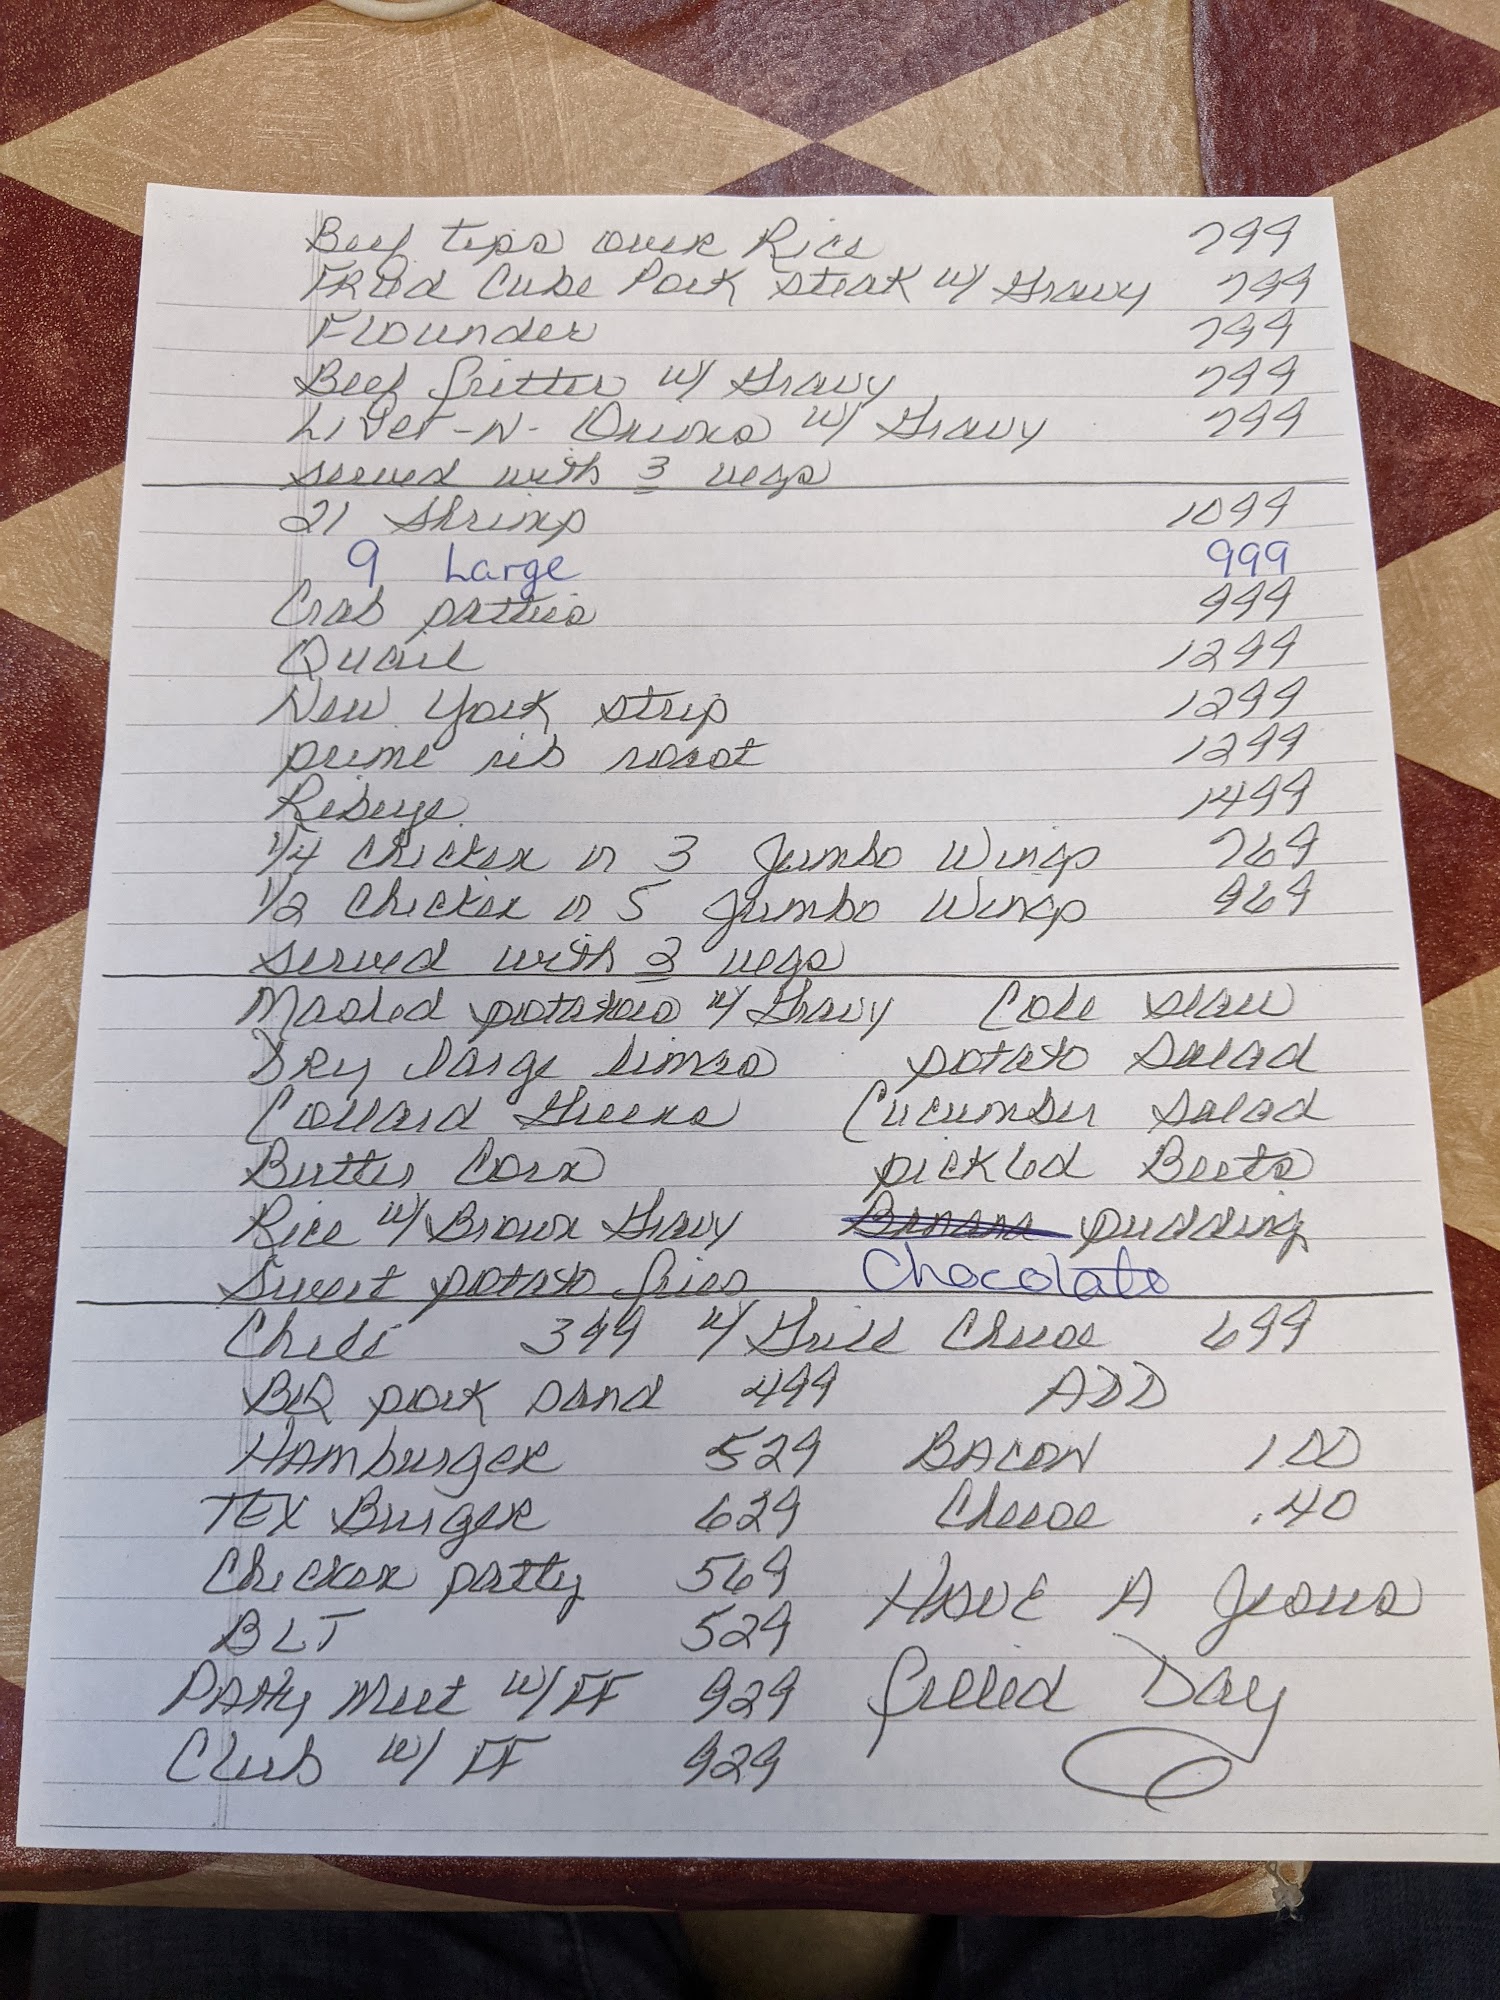 Beef tips over Rice 799
FRied Cube Pork steak w/ Gravy 799
Flounder 799
Beef fritter w/ Gravy 799
Liver-N-Onions w/ Gravy 799
served with 3 vegs
21 Shrimp 1099
9 Large 999
Crab patties 999
Quail 1299
New York strip 1299
prime rib roast 1299
Ribeye 1499
1/4 Chicken or 3 Jumbo Wings 769
1/2 Chicken or 5 Jumbo Wings 969
served with 2 vegs
Mashed potatoes w/ Gravy Cole slaw
Dry large limas potato salad
Collard Greens Cucumber salad
Butter Corn pickled Beets
Rice w/ Brown Gravy Banana pudding
Sweet potato fries Chocolate
Chili 399 w/ Grill Cheese 699
BBQ pork sand 499 ADD
HAmburger 529 BACON 100
TEX Burger 629 Cheese .40
Chicken patty 569 HAVE A Jesus
BLT 529
PAtty Melt w/ FF 929 filled Day
Club w/ FF 929